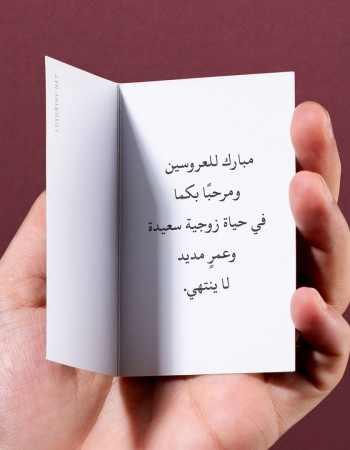 مبارك للعروسين
ومرحبًا بكما
في حياة زوجية سعيدة
وعمرٍ مديد
لا ينتهي.